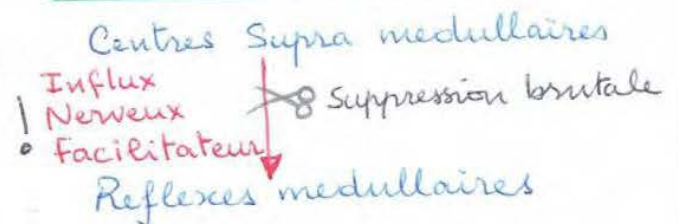 Centres Supra medullaires
Influx
Nerveux
Facilitateur
Suppression brutale
Reflexes medullaires